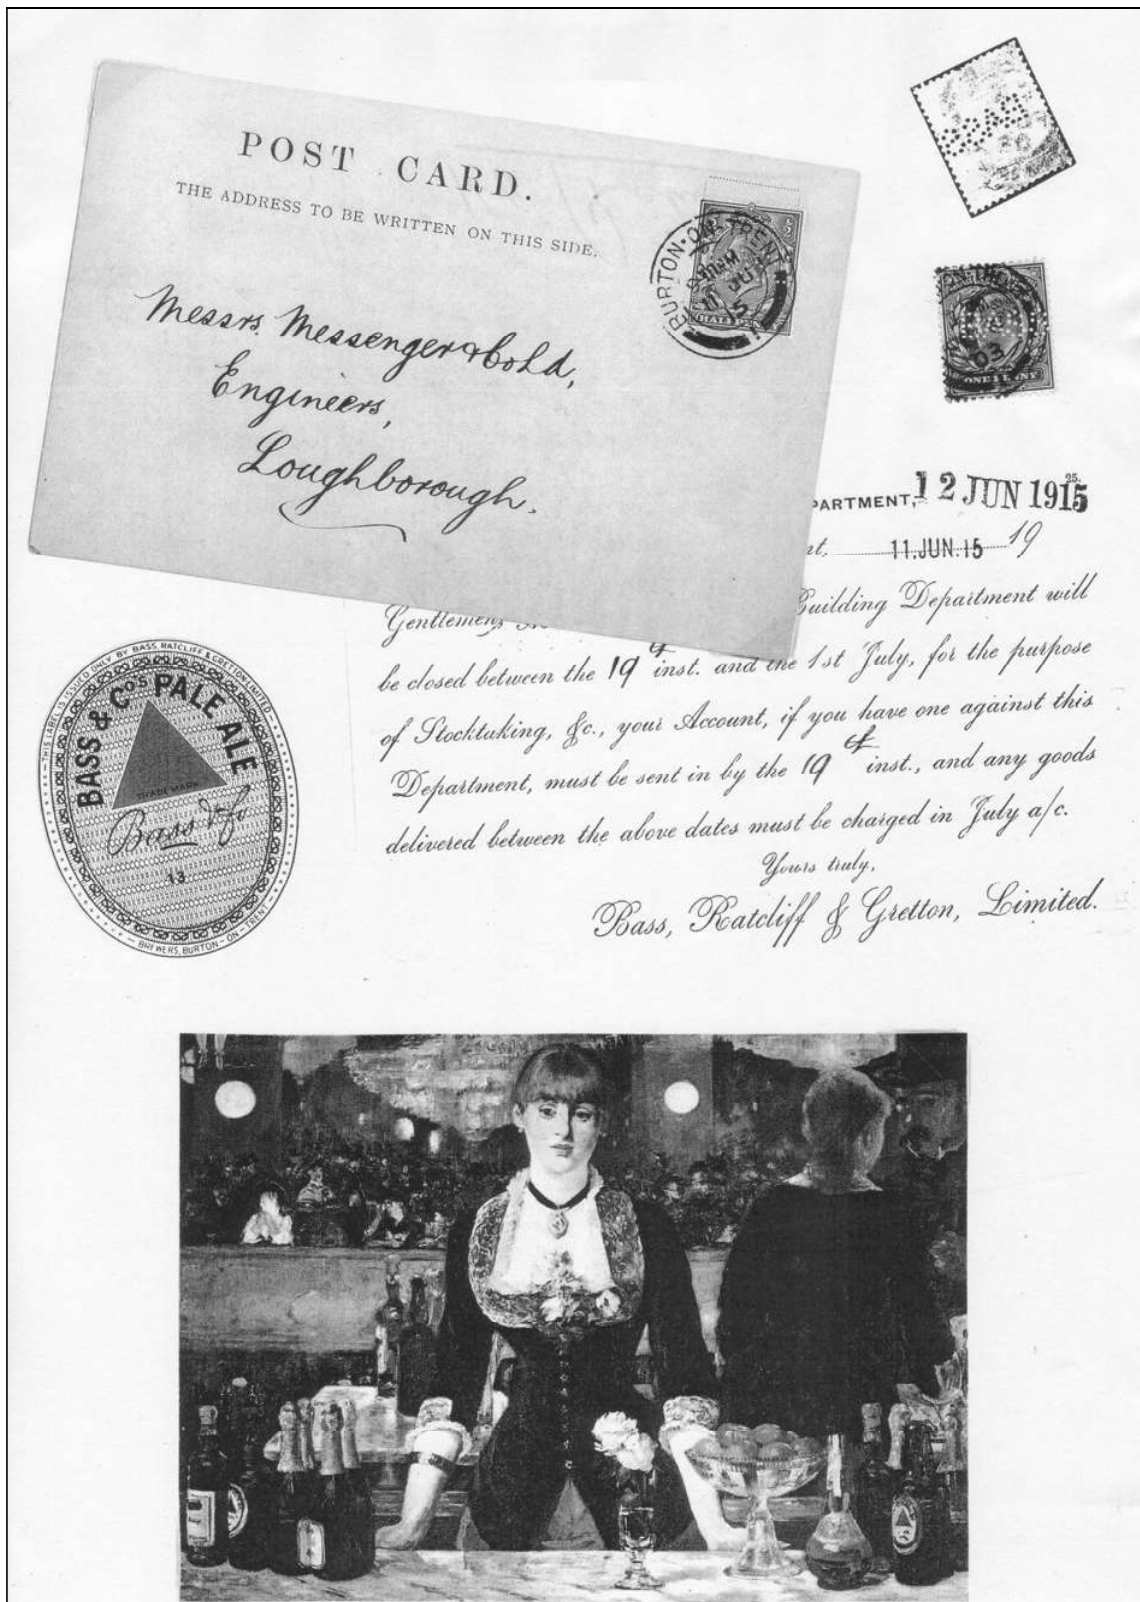 POST CARD.
THE ADDRESS TO BE WRITTEN ON THIS SIDE.
Messrs. Messenger & Co Ld,
Engineers,
Loughborough.
BURTON-ON-TRENT
HALF
ON-TRENT
03
ONE PENNY
PARTMENT, 12 JUN 1915
25.
nt, 11.JUN.15 19
Gentlemen, Building Department will
be closed between the 19th inst. and the 1st July, for the purpose
of Stocktaking, &c., your Account, if you have one against this
Department, must be sent in by the 19th inst., and any goods
delivered between the above dates must be charged in July a/c.
Yours truly,
Bass, Ratcliff & Gretton, Limited.
THIS LABEL IS ISSUED ONLY BY BASS, RATCLIFF & GRETTON LIMITED
BASS & Co's PALE ALE
TRADE MARK
Bass & Co
13
BREWERS, BURTON-ON-TRENT